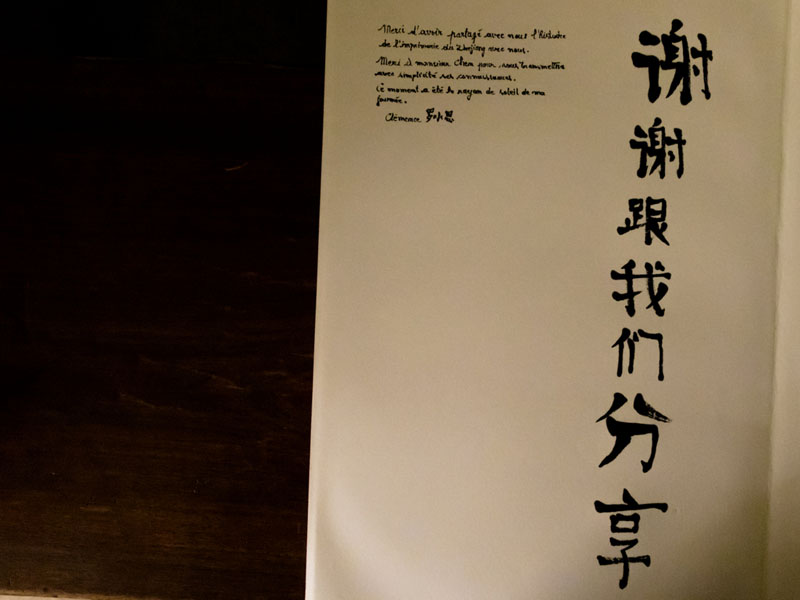 Merci d'avoir partagé avec nous l'histoire
de l'imprimerie du Zhejiang avec nous.
Merci à monsieur Chen pour nous transmettre
avec simplicité ses connaissances.
Ce moment a été le rayon de soleil de ma
journée.
Clémence
谢谢跟我们分享